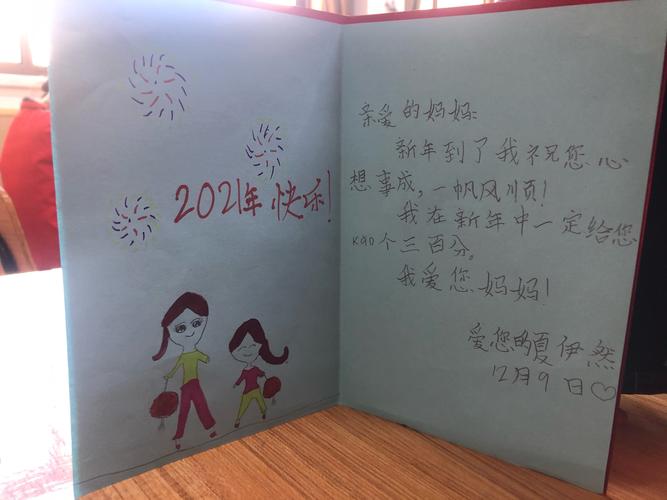 2021年 快乐!
亲爱的妈妈:
新年到了我祝您心
想事成,一帆风顺!
我在新年中一定给您
kao个三百分。
我爱您 妈妈!
爱您的夏伊然
12月9日♡